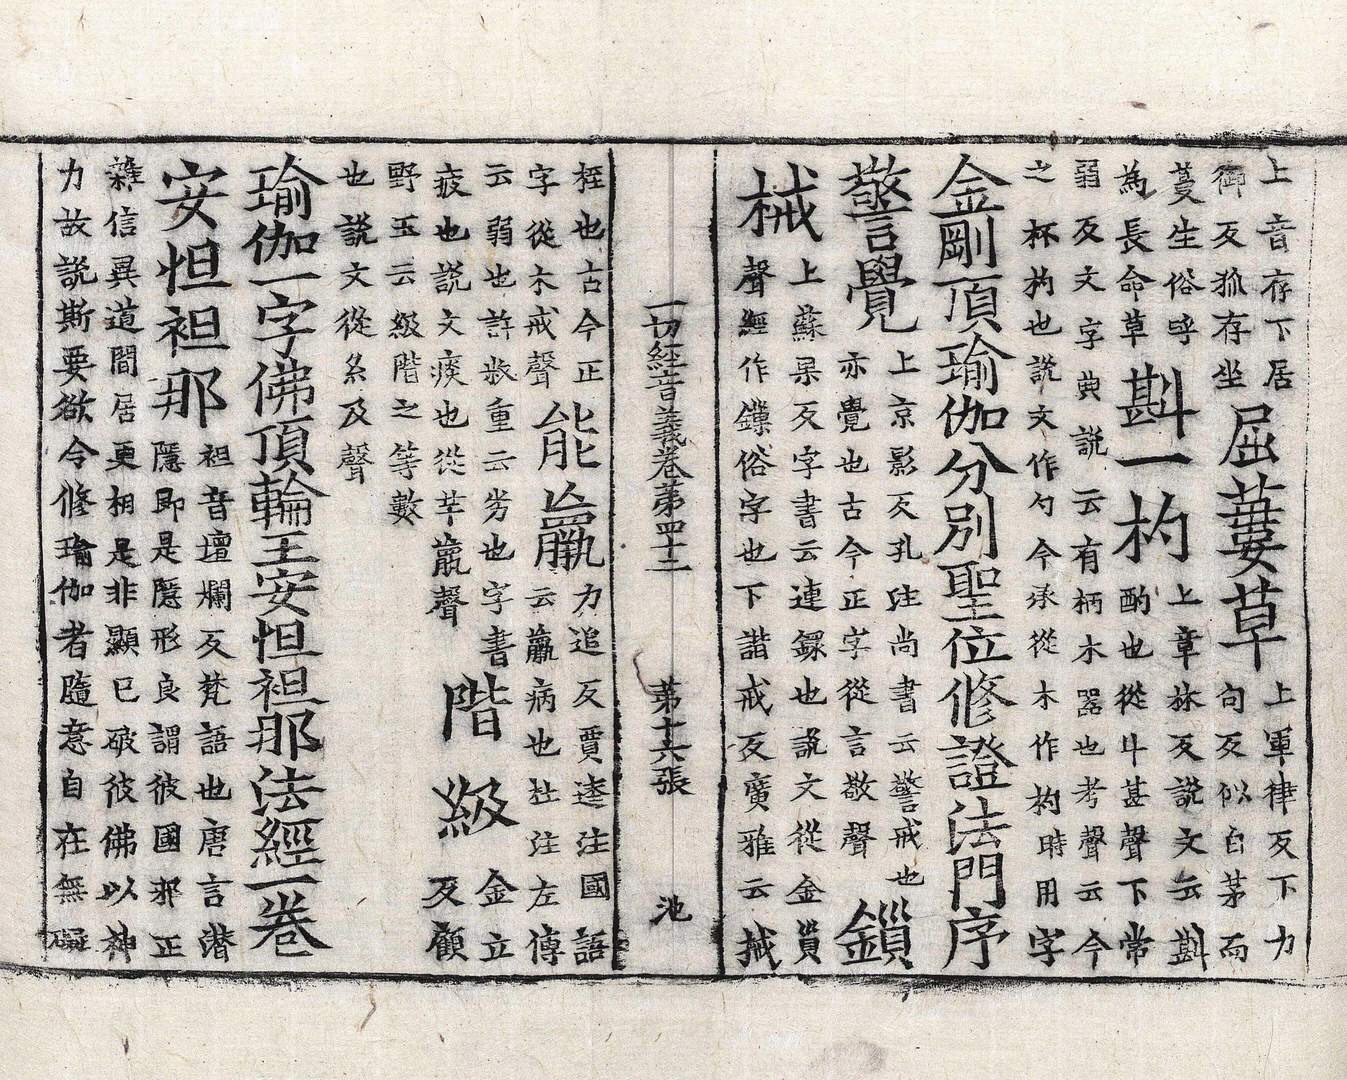 上音存下居
御反狐存坐
屈蔞草
上軍律反下力
句反似白茅而
蔓生俗呼
為長命草
斟一杓
上章袜反說文云斟
酌也從斗甚聲下常
弱反文字典說云有柄木器也考聲云今
之杯杓也說文作勺今承從木作杓時用字
金剛頂瑜伽分別聖位修證法門序
警覺
上京影反孔注尚書云警戒也
亦覺也古今正字從言敬聲
鎻
械
上蘇杲反字書云連鏁也說文從金
聲經作鏁俗字也下諧戒反廣雅云械
一切經音義卷第四十二 第十六張 池
桎也古今正
字從木戒聲
能羸
力追反賈逵注國語
云羸病也杜注左傳
云弱也許叔重云劣也字書
疲也說文瘦也從羊聲
階級
金立
反顧
野王云級階之等數
也說文從糸及聲
瑜伽一字佛頂輪王安怛袒那法經一卷
安怛袒那
袒音壇爛反梵語也唐言潛
隱即是隱形良謂彼國邪正
雜信異道間居更相是非顯已破彼佛以神
力故說斯要欲令修瑜伽者隨意自在無礙